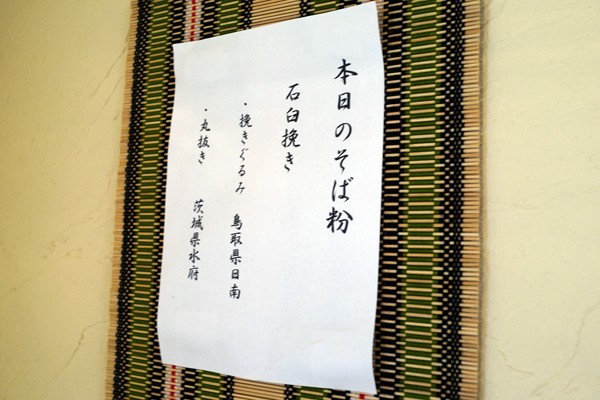 本日のそば粉
石臼挽き
・挽きぐるみ 鳥取県日南
・丸抜き 茨城県水府